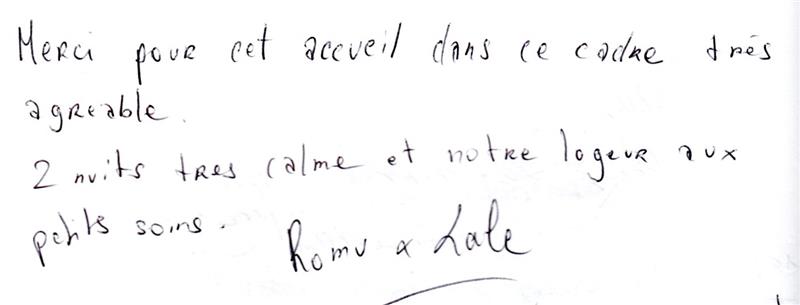 Merci pour cet accueil dans ce cadre très
agreable.
2 nuits tres calme et notre logeur aux
petits soins.
Romu & Lale